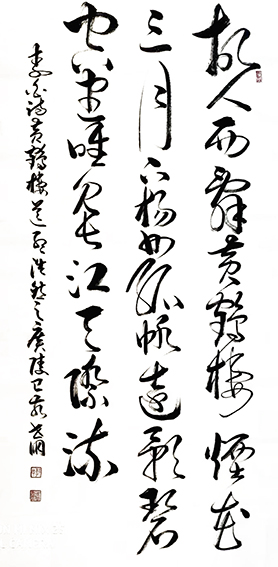 故人西辭黃鶴樓煙花
三月下揚州孤帆遠影碧
空盡唯見長江天際流
李白詩黃鶴樓送孟浩然之廣陵